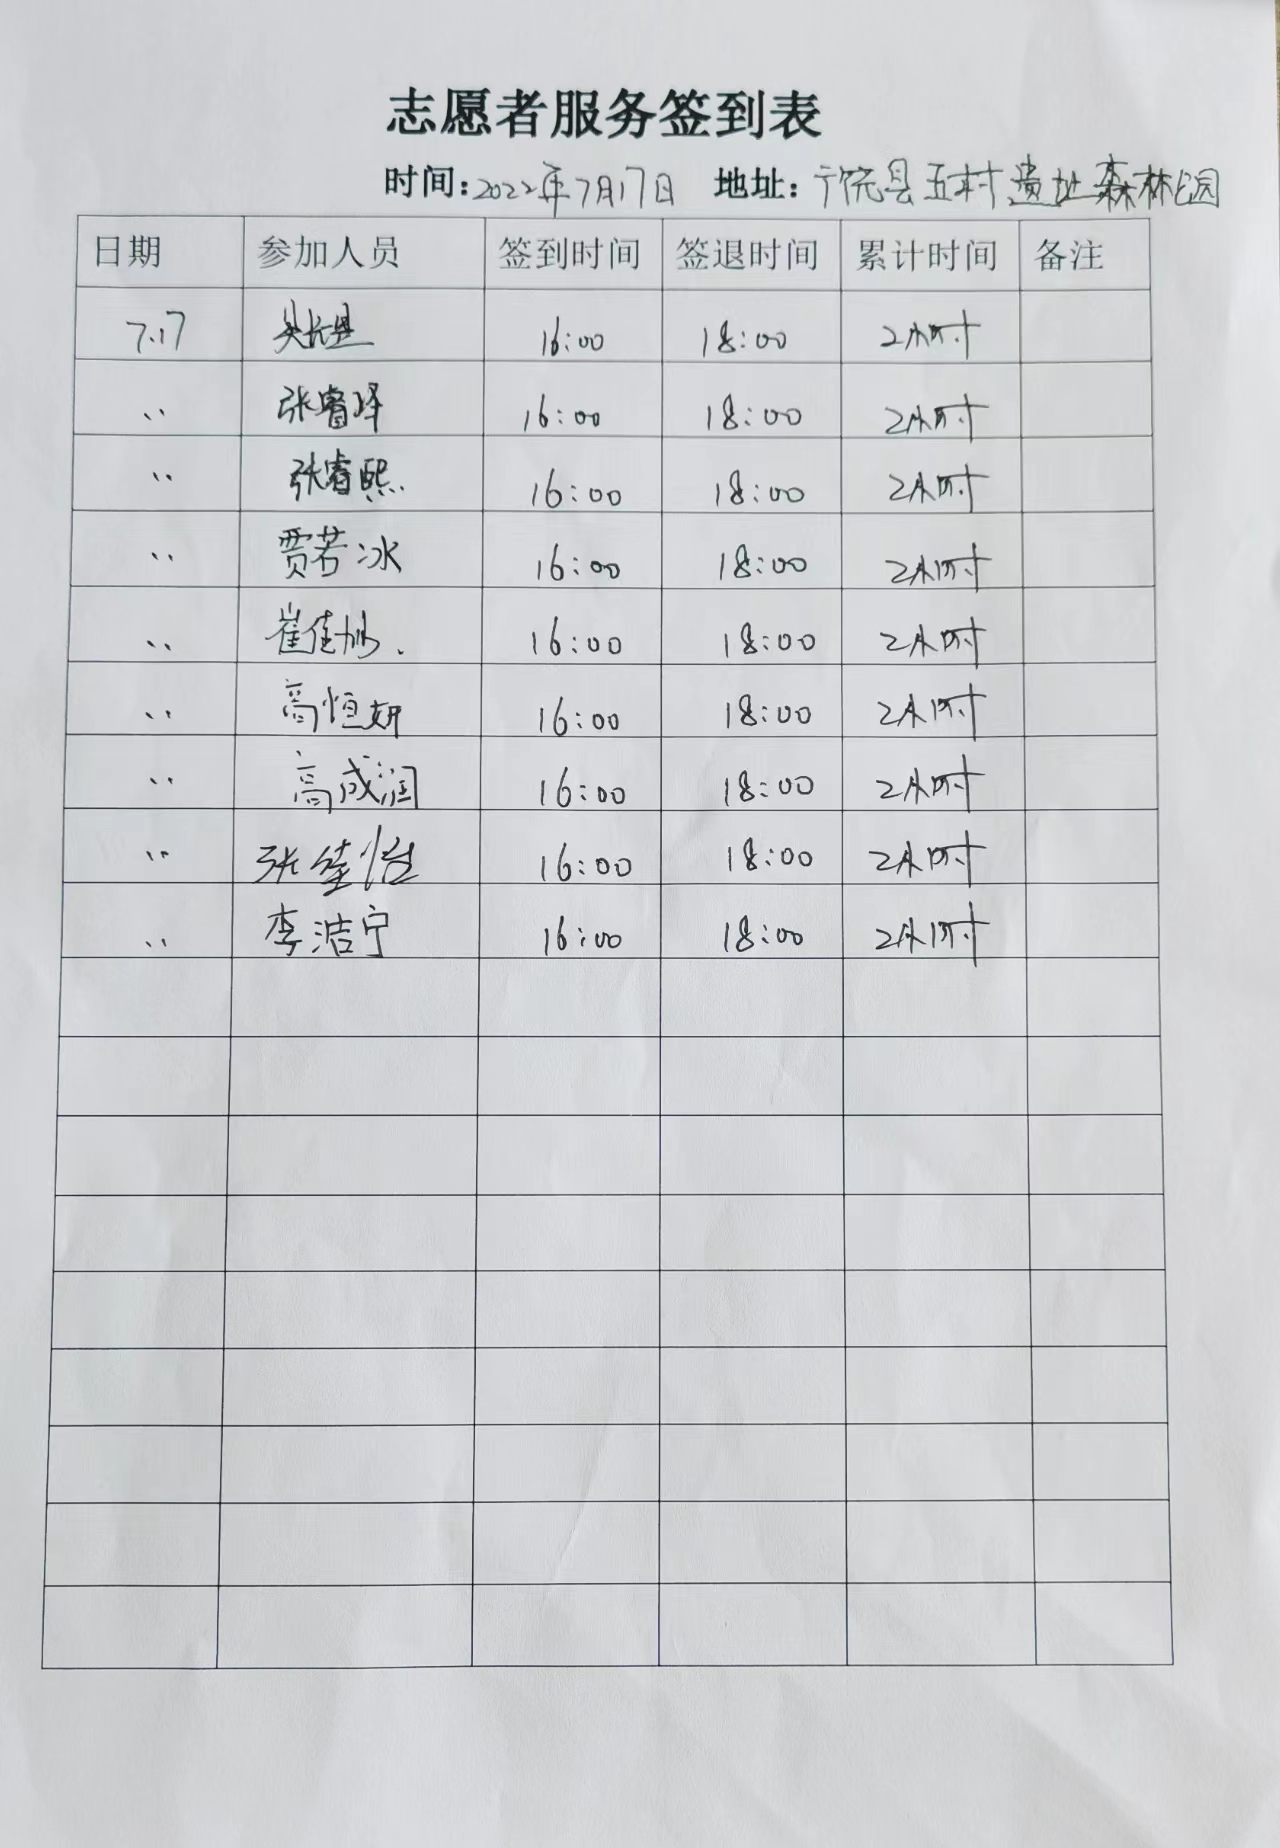 志愿者服务签到表
时间:2022年7月17日 地址:广饶县五村遗址森林公园
日期 参加人员 签到时间 签退时间 累计时间 备注
7.17 16:00 18:00 2小时
〃 张睿择 16:00 18:00 2小时
〃 张睿熙. 16:00 18:00 2小时
〃 贾若冰 16:00 18:00 2小时
〃 崔佳 16:00 18:00 2小时
〃 高恒妍 16:00 18:00 2小时
〃 高成润 16:00 18:00 2小时
〃 张笙怡 16:00 18:00 2小时
〃 李洁宁 16:00 18:00 2小时